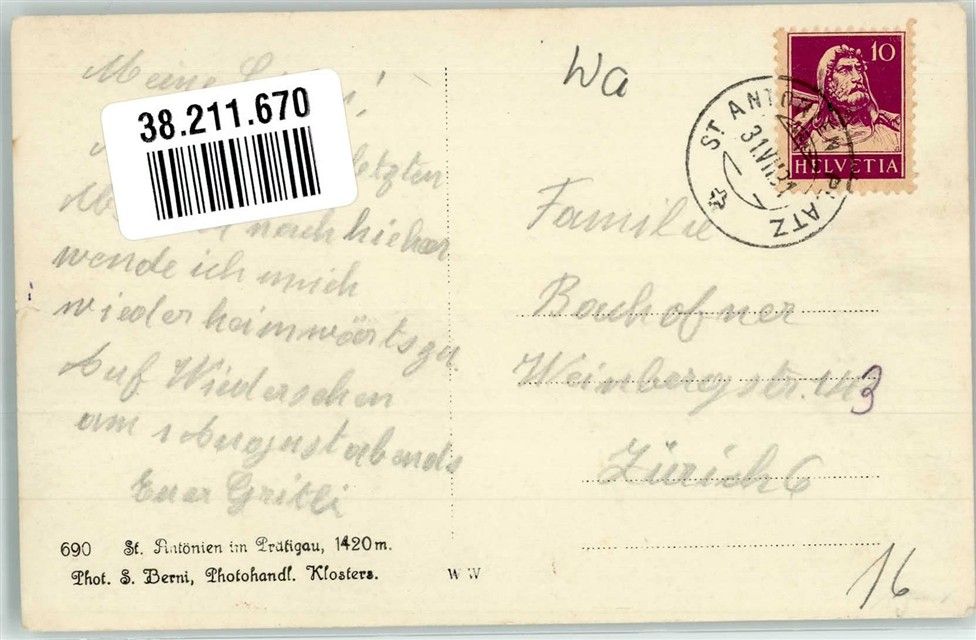 Meine
38.211.670
letzten
nach hieher
wende ich mich
wieder heimwärts zu
Auf Wiedersehen
am 1 August abends
Euer Gritli
690 St. Antönien im Prätigau, 1420 m.
Phot. S. Berni, Photohandl. Klosters.
W W
Wa
10
HELVETIA
ST. ANTÖNIEN PLATZ
31.VII.31
Familie
Bachofner
Weinbergstr. 143
Zürich 6
16